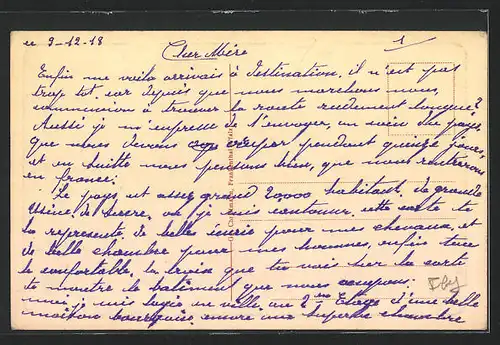 le 9-12-18
1
Cher Mère
Enfin me voila arrivais à destination, il n'est pas
trop tot, car depuis que nous marchons nous
commencion a trouver la route rudement longue?
Aussi je m'empresse de t'envoyer, un coin du pays,
que nous devons occuper pendent quinze jours,
et en suitte nous pensons bien, que nous rentrerons
en france.
Le pays est assez grand 20,000 habitant, de grande
Usine de sucre, ou je suis cantonner, cette carte te
la represente de belle écurie pour mes chevaux, et
de belle chambre pour mes hommes, enfin tous
le confortable. la croix que tu vois sur la carte
te montre le batiment que nous occupons.
moi, je suis logés en ville, au 2me Etage d'une belle
maison bourgoise, encore une superbe chambre